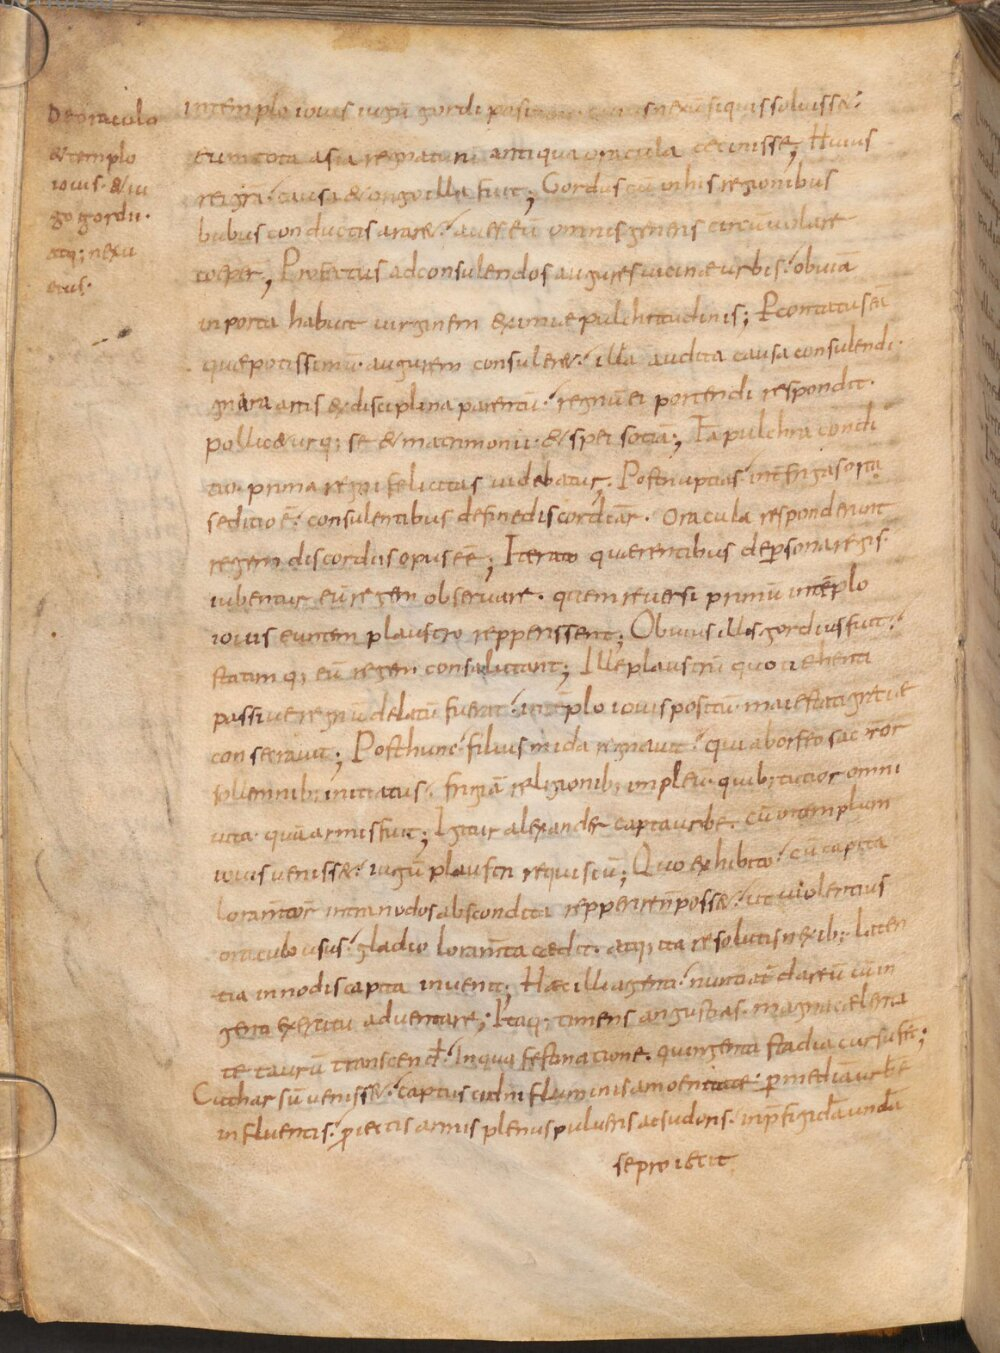 De oraculo
& templo
iouis · & iu
go gordii ·
atq; nexu
eius ·
in templo iouis iugū gordi positum cuius nexū siquis soluiss&
eum tota asia regnaturū antiqua oracula cecinisse; Huius
rei gr̄a causa & origo illa fuit; Gordius cū in his regionibus
bubus conductis arar& aues eū omnis generis circūuolare
coeper, Profectus ad consulendos augures uicinae urbis obuiā
in porta habuit uirginem eximiae pulchritudinis; Percontatus eā
quē potissimū augurem consuler& illa audita causa consulendi
gnara artis ex disciplina parentū regnū ei portendi respondit ·
pollic&urq; se & matrimonii & spei sociā; Tā pulchra condi
tio prima regni felicitas uidebatur; Post nuptias int̄ frigas orta
seditio ē consulentibus de fine discordiar̄ · Oracula responderunt
regem discordiis opus eē; Iterato quaerentibus de persona regis
iubentur eū regem obseruare · quem reuersi primū in tēplo
iouis euntem plaustro repperissent; Obuius illis gordius fuit
statimq; eū regem consalutant; Ille plaustrū quo uehenti
passiue regnū delatū fuerat in tēplo iouis positū maiestati regiae
consecrauit; Post hunc filius mida regnauit qui ab orfeo sacror̄
sollemnib; initiatus · frigiā religionib; impleuit quib; tutior omni
uita quā armis fuit; Igitur alexander capta urbe · cū in templum
iouis uenisset iugū plaustri requisiuit; Quo exhibito cū capita
loramentor̄ intra nodos abscondita repperire n̄ poss& ut uiolentius
oraculo usus gladio loramenta caedit · atq; ita resolutis nexib; laten
tia in nodis capita inuenit; Haec illi agenti nuntiat̄ dareū cū in
genti exercitu aduentare; Itaq; timens angustias · magna celerita
te taurū transcend& In qua festinatione · quingenta stadia cursu fec̄;
Cū tharsum uenisset captus cidni fluminis amoenitate per mediā urbē
influentis · proiectis armis plenus pulueris ac sudoris · in prefrigidā undā
se proiecit